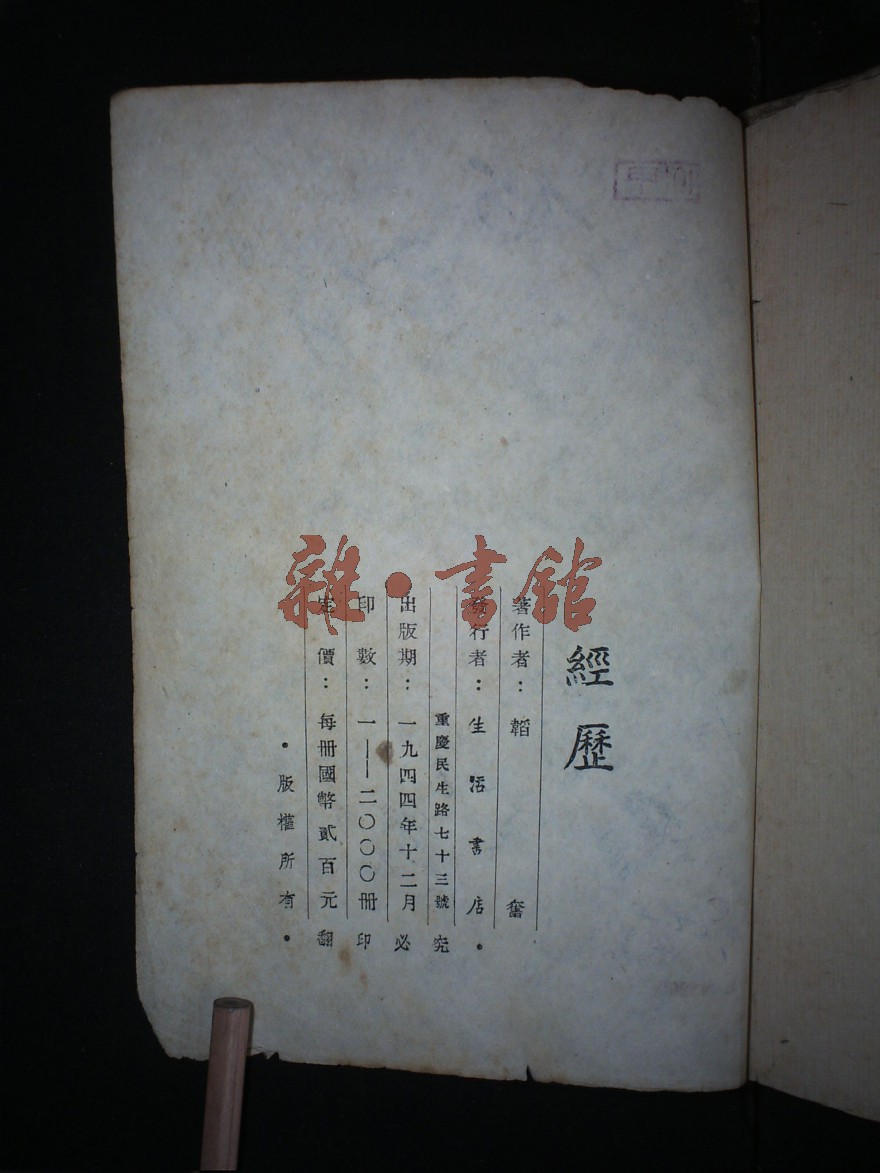 雜·書館
經歷
著作者：韜奮
發行者：生活書店
重慶民生路七十三號
出版期：一九四四年十二月
印數：一——二〇〇〇冊
定價：每冊國幣貳百元
·版權所有·
翻印必究·